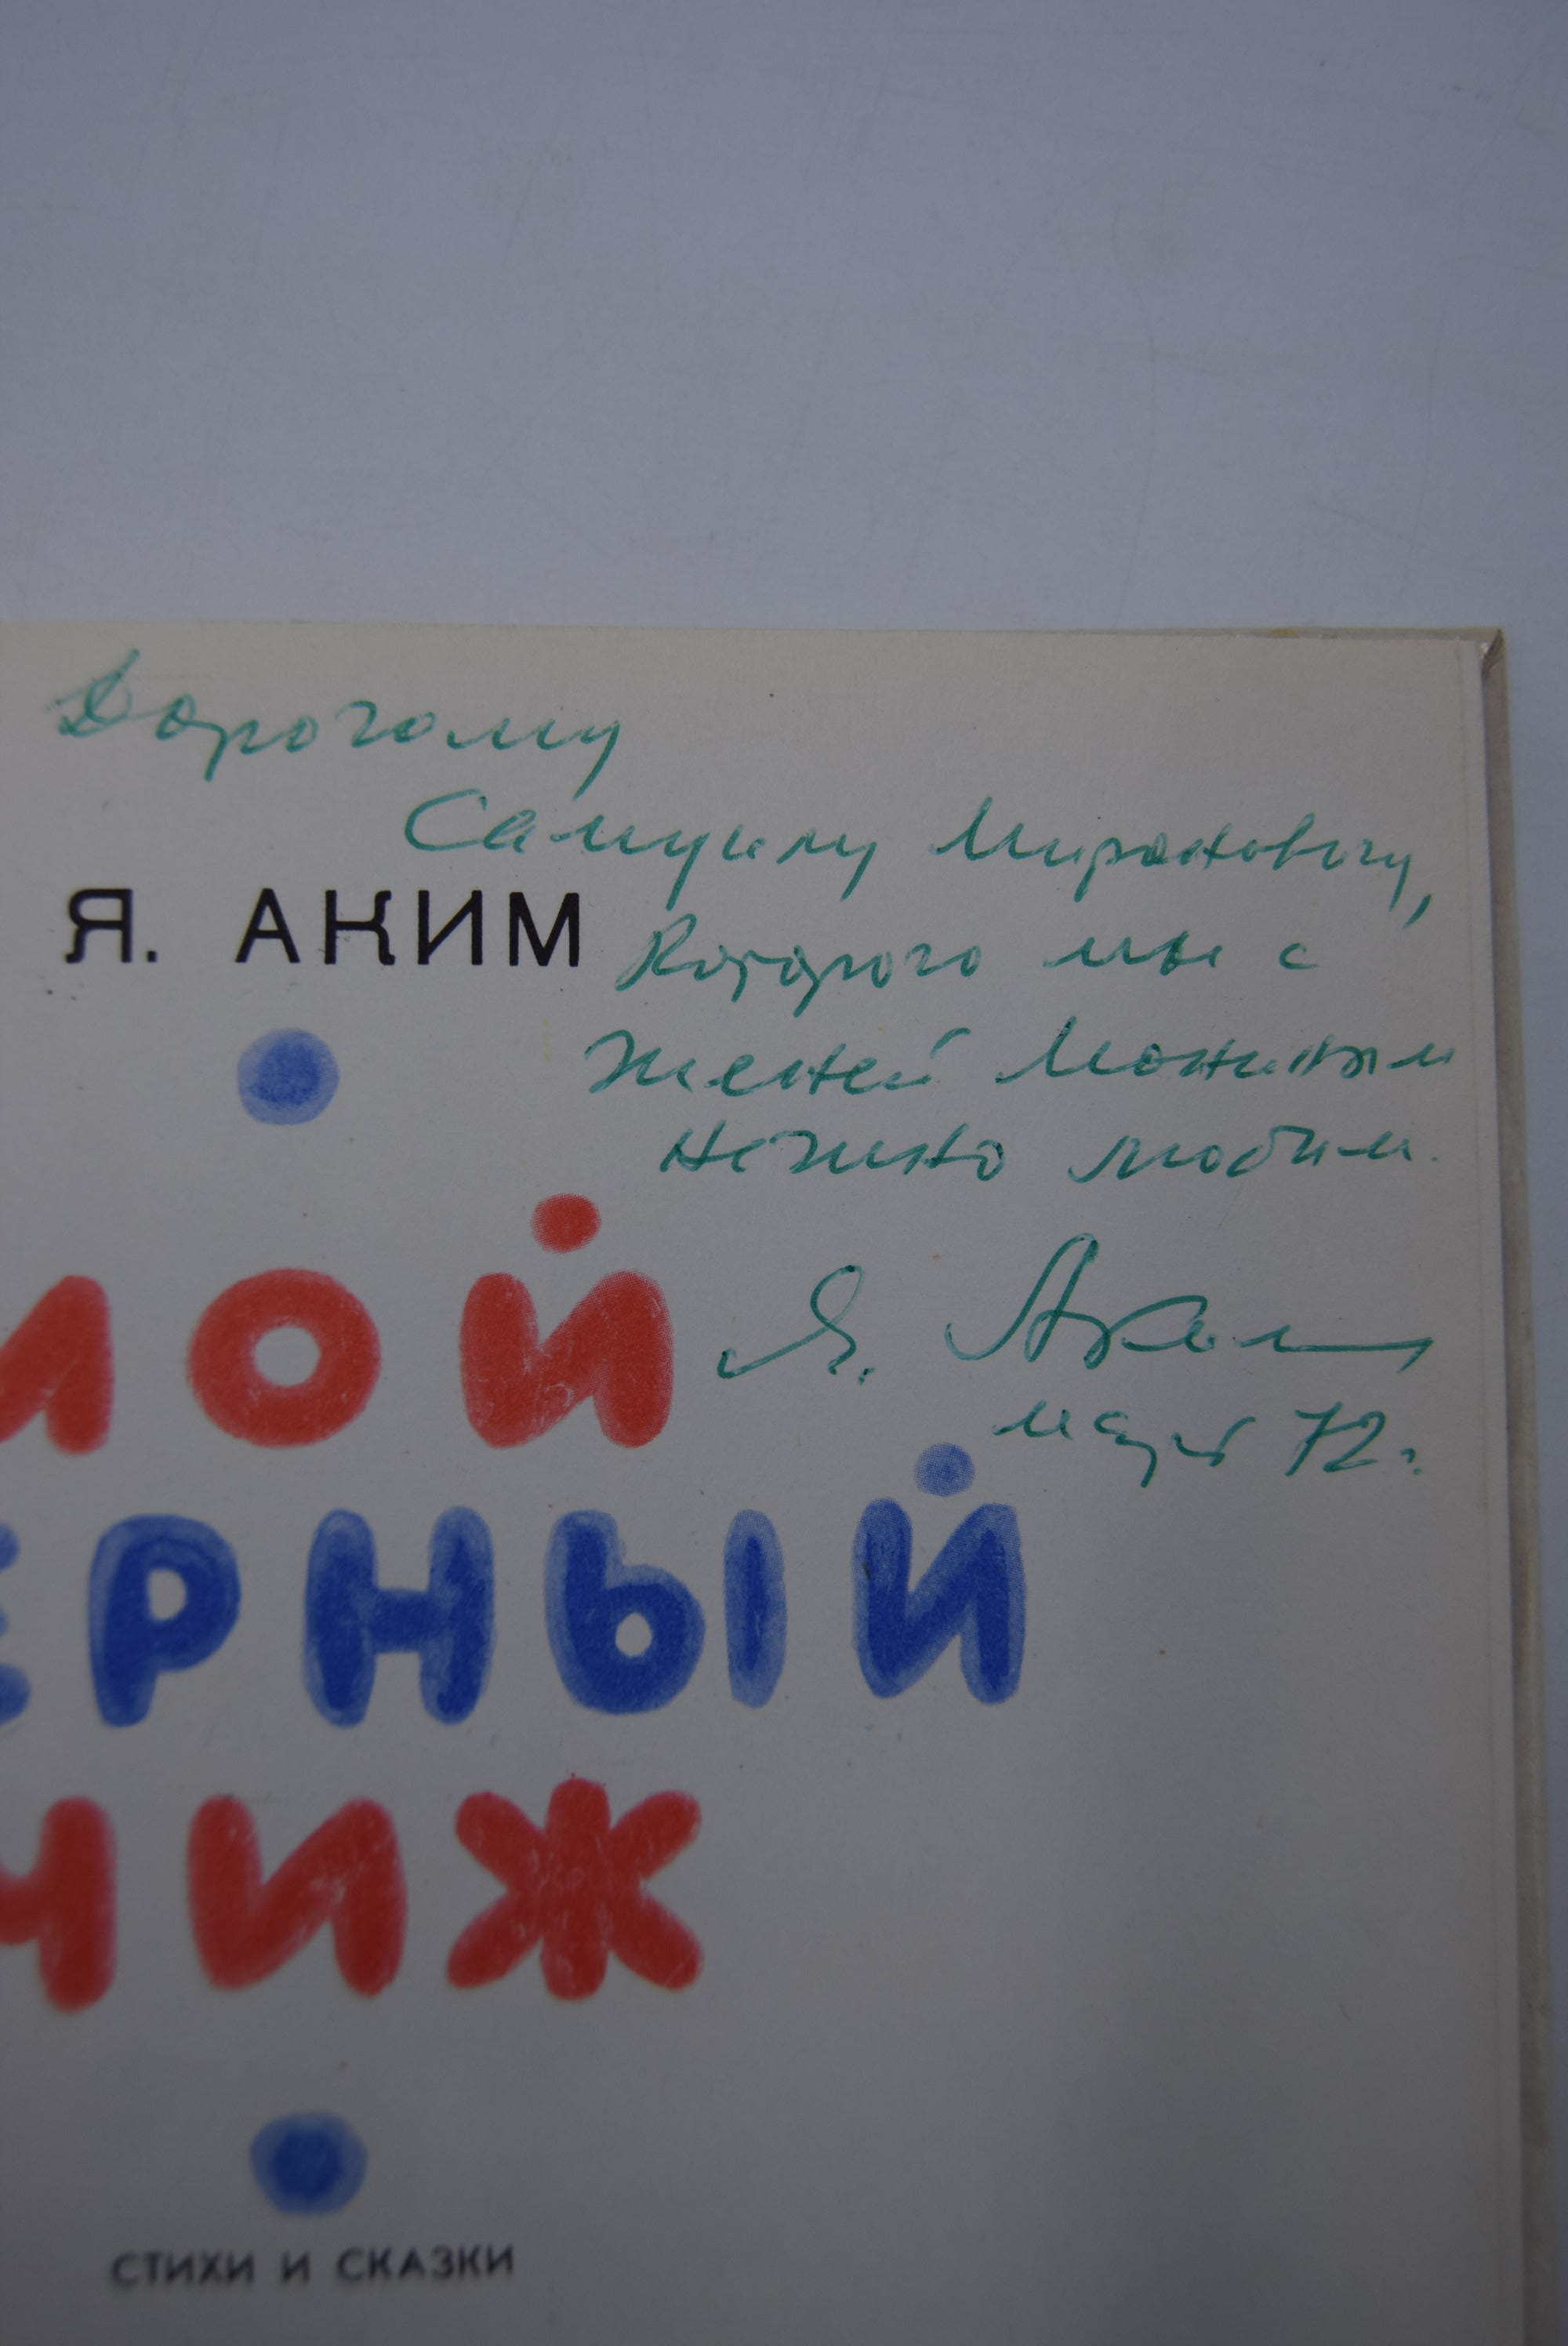 Дорогому
Самуилу Мироновичу,
Я. АКИМ
которого мы с
Женей Мониным
нежно любим.
МОЙ
Я. Аким
март 72 г.
ЕРНЫЙ
ЧИЖ
СТИХИ И СКАЗКИ